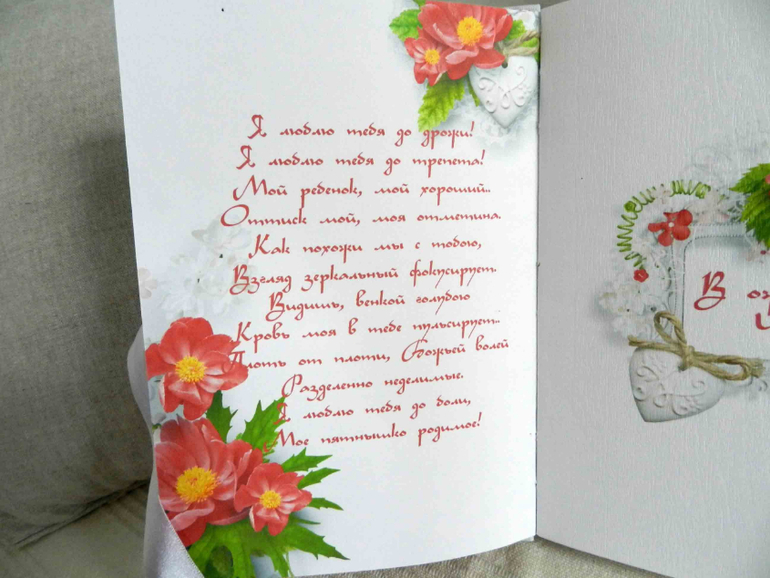 Я люблю тебя до дрожи!
Я люблю тебя до трепета!
Мой ребенок, мой хороший..
Оттиск мой, моя отметина.
Как похожи мы с тобою,
Взгляд зеркальный фокусирует.
Видишь, венкой голубою
Кровь моя в тебе пульсирует..
Плоть от плоти, Божьей волей
Разделенно неделимые.
Я люблю тебя до боли,
Мое пятнышко родимое!
В ож